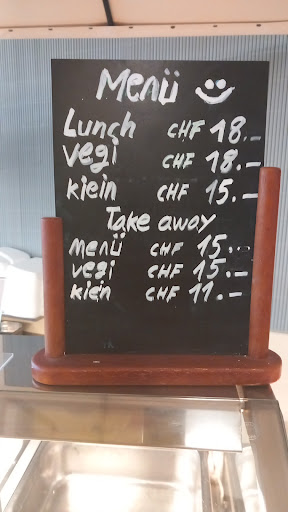 Menü
Lunch CHF 18.-
vegi CHF 18.-
klein CHF 15.-
Take away
menü CHF 15.-
vegi CHF 15.-
klein CHF 11.-